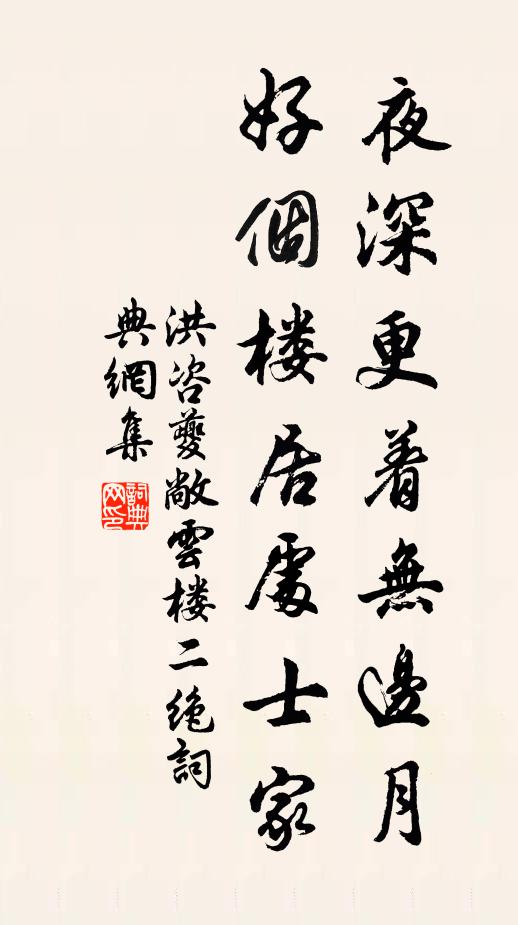 夜深更着無邊月
好個楼居處士家
洪咨夔敞雲楼二絶詞
典網集
詞典网印